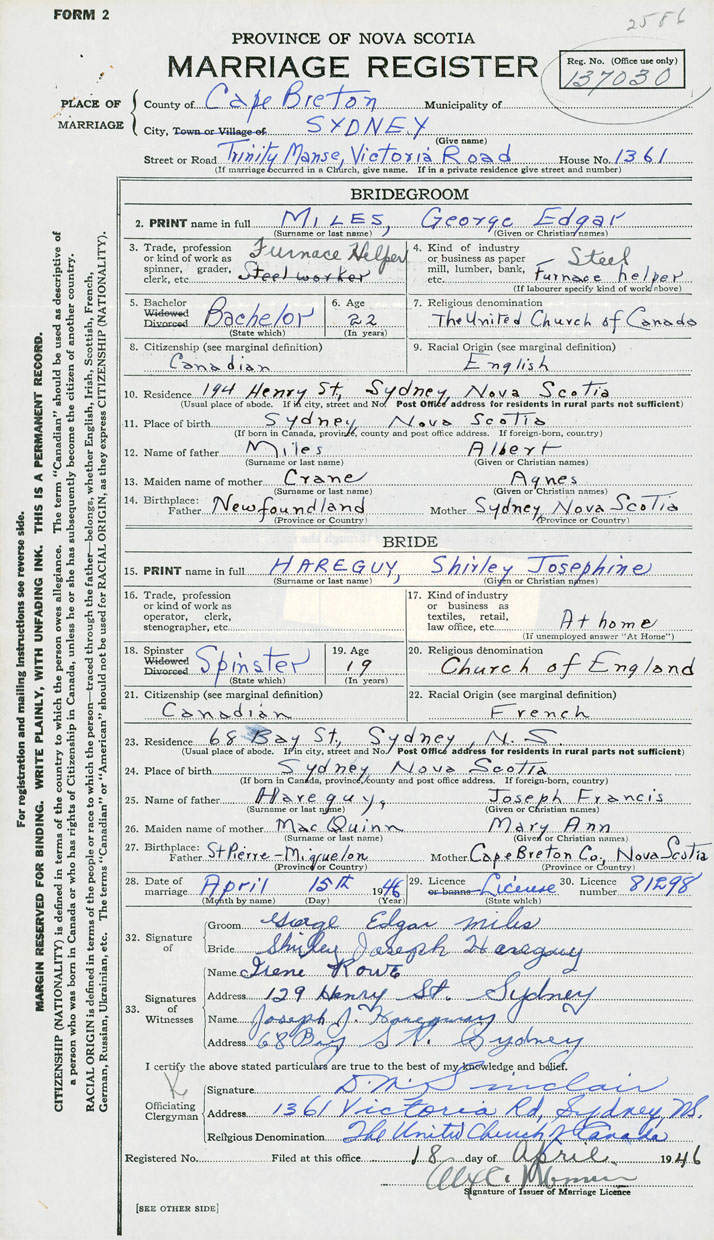 FORM 2
2586
PROVINCE OF NOVA SCOTIA
MARRIAGE REGISTER
Reg. No. (Office use only)
137030
PLACE OF MARRIAGE
County of Cape Breton Municipality of
City, Town or Village of SYDNEY
(Give name)
Street or Road Trinity Manse, Victoria Road House No. 1361
(If marriage occurred in a Church, give name. If in a private residence give street and number)
BRIDEGROOM
2. PRINT name in full MILES, George Edgar
(Surname or last name) (Given or Christian names)
3. Trade, profession or kind of work as spinner, grader, clerk, etc. Furnace Helper Steel worker
4. Kind of industry or business as paper mill, lumber, bank, etc. Steel Furnace helper
(If labourer specify kind of work above)
5. Bachelor Widowed Divorced Bachelor
(State which)
6. Age 22
(In years)
7. Religious denomination
The United Church of Canada
8. Citizenship (see marginal definition)
Canadian
9. Racial Origin (see marginal definition)
English
10. Residence 194 Henry St, Sydney, Nova Scotia
(Usual place of abode. If in city, street and No. Post Office address for residents in rural parts not sufficient)
11. Place of birth Sydney Nova Scotia
(If born in Canada, province, county and post office address. If foreign-born, country)
12. Name of father Miles Albert
(Surname or last name) (Given or Christian names)
13. Maiden name of mother Crane Agnes
(Surname or last name) (Given or Christian names)
14. Birthplace: Father Newfoundland Mother Sydney Nova Scotia
(Province or Country) (Province or Country)
BRIDE
15. PRINT name in full HAREGUY, Shirley Josephine
(Surname or last name) (Given or Christian names)
16. Trade, profession or kind of work as operator, clerk, stenographer, etc.
17. Kind of industry or business as textiles, retail, law office, etc. At home
(If unemployed answer "At Home")
18. Spinster Widowed Divorced Spinster
(State which)
19. Age 19
(In years)
20. Religious denomination
Church of England
21. Citizenship (see marginal definition)
Canadian
22. Racial Origin (see marginal definition)
French
23. Residence 68 Bay St, Sydney, N.S.
(Usual place of abode. If in city, street and No. Post Office address for residents in rural parts not sufficient)
24. Place of birth Sydney Nova Scotia
(If born in Canada, province, county and post office address. If foreign-born, country)
25. Name of father Hareguy, Joseph Francis
(Surname or last name) (Given or Christian names)
26. Maiden name of mother MacQuinn Mary Ann
(Surname or last name) (Given or Christian names)
27. Birthplace: Father St Pierre-Miguelon Mother Cape Breton Co., Nova Scotia
(Province or Country) (Province or Country)
28. Date of marriage April 15th 1946
(Month by name) (Day) (Year)
29. Licence or banns License
(State which)
30. Licence number 81298
32. Signature of
Groom George Edgar Miles
Bride Shirley Joseph Hareguy
33. Signatures of Witnesses
Name Irene Rowe
Address 129 Henry St. Sydney
Name Joseph J. Hareguay
Address 68 Bay St. Sydney
I certify the above stated particulars are true to the best of my knowledge and belief.
Officiating Clergyman
Signature D. M. Sinclair
Address 1361 Victoria Rd, Sydney, N.S.
Religious Denomination The United Church of Canada
Registered No. Filed at this office 18 day of April 1946
Signature of Issuer of Marriage Licence
[SEE OTHER SIDE]
For registration and mailing instructions see reverse side.
MARGIN RESERVED FOR BINDING. WRITE PLAINLY, WITH UNFADING INK. THIS IS A PERMANENT RECORD.
CITIZENSHIP (NATIONALITY) is defined in terms of the country to which the person owes allegiance. The term "Canadian" should be used as descriptive of
a person who was born in Canada or who has rights of Citizenship in Canada, unless he or she has subsequently become the citizen of another country.
RACIAL ORIGIN is defined in terms of the people or race to which the person—traced through the father—belongs, whether English, Irish, Scottish, French,
German, Russian, Ukrainian, etc. The terms "Canadian" or "American" should not be used for RACIAL ORIGIN, as they express CITIZENSHIP (NATIONALITY).